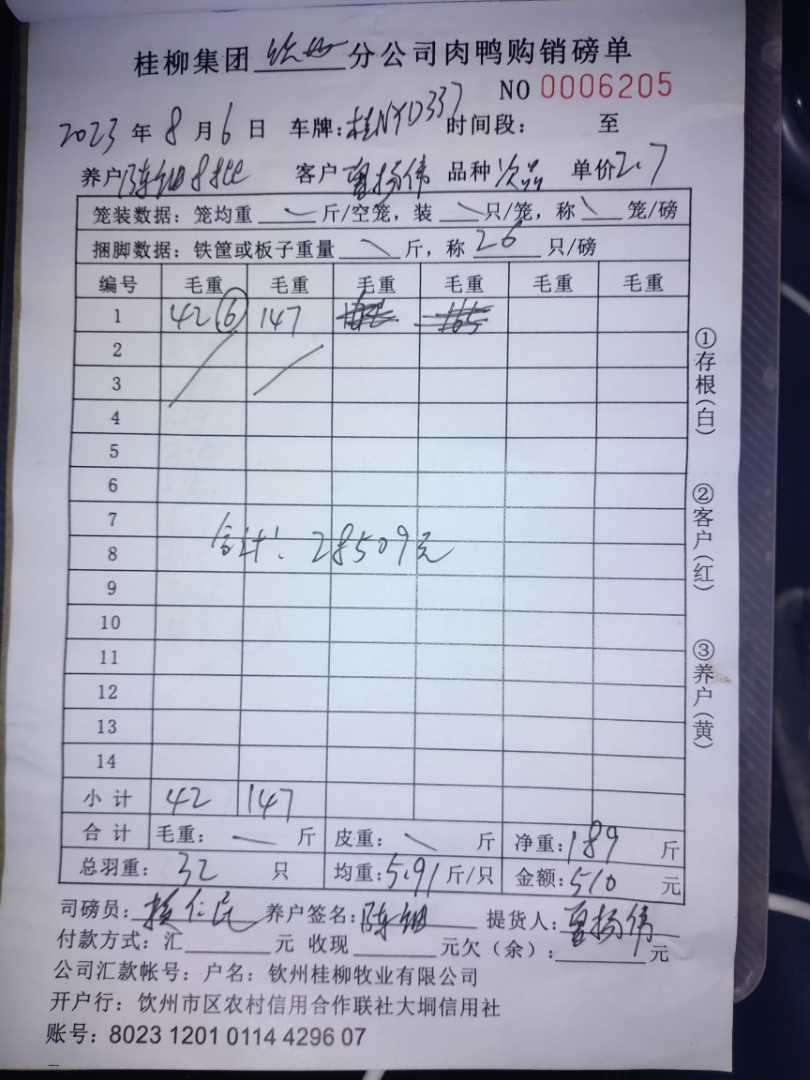 桂柳集团 钦州 分公司肉鸭购销磅单
NO 0006205
2023 年 8 月 6 日 车牌:桂NYD337 时间段: 至
养户 陈 8批 客户 扬伟 品种 次品 单价 2.7
笼装数据: 笼均重 斤/空笼, 装 只/笼, 称 笼/磅
捆脚数据: 铁筐或板子重量 斤, 称 26 只/磅
编号 毛重 毛重 毛重 毛重 毛重 毛重
1 42 6 147 165
2
3
4
5
6
7
合计: 28509元
8
9
10
11
12
13
14
小 计 42 147
合 计 毛重: 斤 皮重: 斤 净重: 189 斤
总羽重: 32 只 均重: 5.91 斤/只 金额: 510 元
司磅员: 仁民 养户签名: 陈 提货人: 扬伟
付款方式: 汇 元 收现 元欠(余): 元
公司汇款帐号: 户名: 钦州桂柳牧业有限公司
开户行: 饮州市区农村信用合作联社大垌信用社
账号: 8023 1201 0114 4296 07
①存根(白)
②客户(红)
③养户(黄)